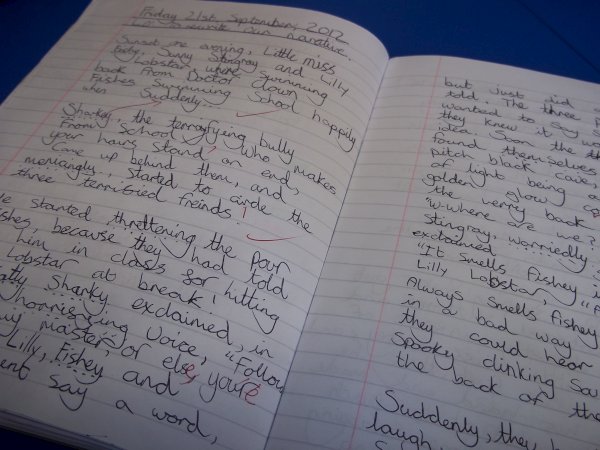 Friday 21st September 2012
to rewrite our narrative.
Sunset one evening, Little miss
fishy, Sunny Stingray and Lilly
Lobster where Swimming
back from Doctor Clown
Fishes Swimming School happily
when Suddenly...
Sharkey, the terrayfyeing bully
From School, who makes
your hairs Stand on end,
Came up behind them, and
menaingly, Started to circle the
three terrified freinds!
He started thrattening the poor
fishes, because they had told
him in class for hitting
Lobstar at break!
Sharky exclaimed, in
horrifieing voice, "Follow
my master, or else, you're
Lilly, Fishey and
Say a word,
but just did
told. The three
wanted to say
they knew it
idea. Soon the
found themselves
pitch black cave,
of light being a
golden glow
the verry back
"W-where are we?
Stingray, worriedly
exclaimed
"It Smells fishey
Lilly Lobstar,
Always Smells fishey
in a bad way
they could hear
Spooky clinking
the back of the
Suddenly, they
laugh,